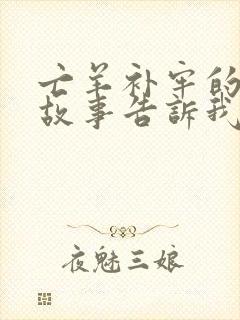 亡羊补牢的
故事告訴我
夜魅三娘